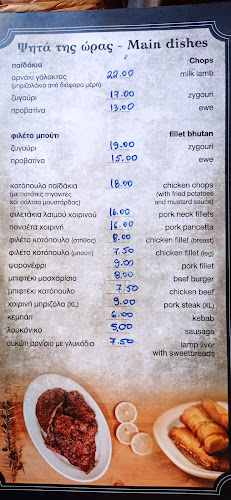 Ψητά της ώρας - Main dishes
παϊδάκια Chops
αρνάκι γάλακτος 22.00 milk lamb
(μπριζολάκια από διάφορα μέρη)
ζυγούρι 17.00 zygouri
προβατίνα 13.00 ewe
φιλέτο μπούτι fillet bhutan
ζυγούρι 19.00 zygouri
προβατίνα 15.00 ewe
κοτόπουλο παϊδάκια 18.00 chicken chops
(με πατάτες τηγανιτές (with fried potatoes
και σάλτσα μουστάρδας) and mustard sauce)
φιλετάκια λαιμού χοιρινού 16.00 pork neck fillets
πανσέτα χοιρινή 16.00 pork pancetta
φιλέτο κοτόπουλο (στήθος) 8.00 chicken fillet (breast)
φιλέτο κοτόπουλο (μπούτι) 7.50 chicken fillet (leg)
ψαρονέφρι 9.00 pork fillet
μπιφτέκι μοσχαρίσιο 8.00 beef burger
μπιφτέκι κοτόπουλο 7.50 chicken beef
χοιρινή μπριζόλα (XL) 9.00 pork steak (XL)
κεμπάπ 6.00 kebab
λουκάνικο 5,00 sausage
συκώτι αρνίσιο με γλυκάδια 7.50 lamp liver
with sweetbreads